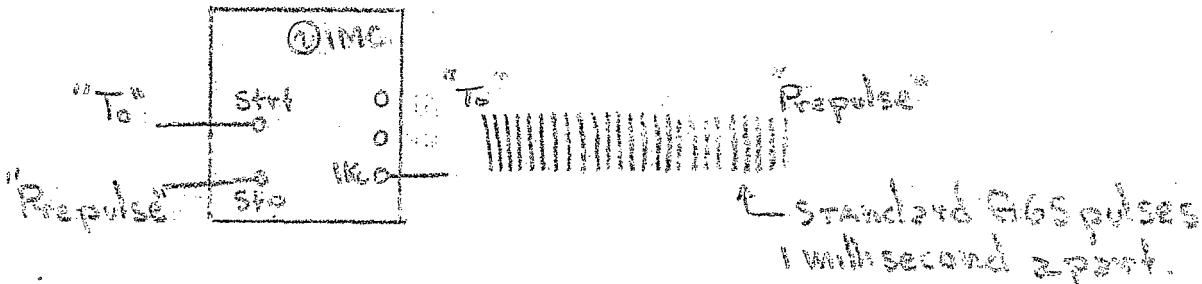 ② 1MC
"To" Strt "To" "Prepulse"
1Kc
"Prepulse" Sto
Standard AGS pulses
1 millisecond apart.